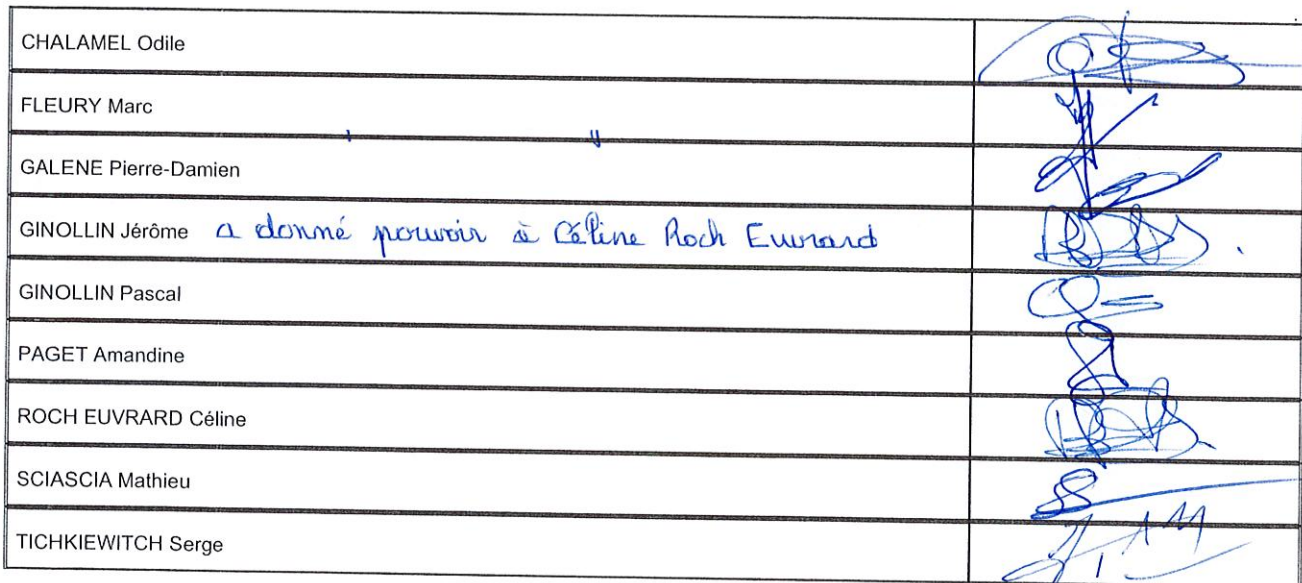 CHALAMEL Odile
FLEURY Marc
GALENE Pierre-Damien
GINOLLIN Jérôme a donné pouvoir à Céline Roch Euvrard
GINOLLIN Pascal
PAGET Amandine
ROCH EUVRARD Céline
SCIASCIA Mathieu
TICHKIEWITCH Serge